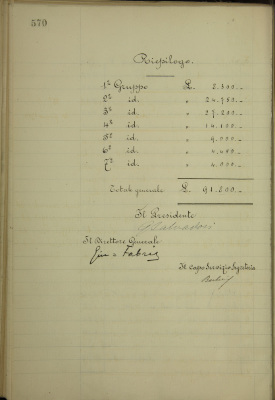 570
Riepilogo.
1º Gruppo £. 2.300.-
2º id. " 24.750.-
3º id. " 27.200.-
4º id. " 14.100.-
5º id. " 9.000.-
6º id. "
7º id. " 4.000.-
Totale generale £. 91.200.-
Il Presidente
Il Direttore Generale
Fabris
Il Capo Servizio Segreteria